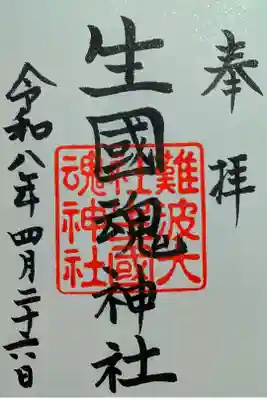 奉拝
生國魂神社
令和八年四月二十六日
難波大
社生國
魂神社